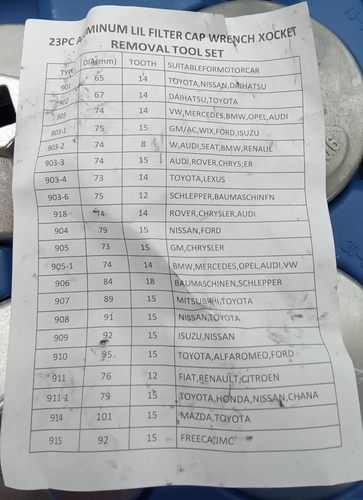 23PC ALUMINUM LIL FILTER CAP WRENCH XOCKET
REMOVAL TOOL SET
TYPE DIA(mm) TOOTH SUITABLEFORMOTORCAR
901 65 14 TOYOTA,NISSAN,DAIHATSU
902 67 14 DAIHATSU,TOYOTA
903 74 14 VW,MERCEDES,BMW,OPEL,AUDI
903-1 75 15 GM/AC,WIX,FORD,ISUZU
903-2 74 8 W,AUDI,SEAT,BMW,RENAUL
903-3 74 15 AUDI,ROVER,CHRYS;ER
903-4 73 14 TOYOTA,LEXUS
903-6 75 12 SCHLEPPER,BAUMASCHINFN
918 74 14 ROVER,CHRYSLER,AUDI
904 79 15 NISSAN,FORD
905 73 15 GM,CHRYSLER
905-1 74 14 BMW,MERCEDES,OPEL,AUDI,VW
906 84 18 BAUMASCHINEN,SCHLEPPER
907 89 15 MITSUBIHI,TOYOTA
908 91 15 NISSAN,TOYOTA
909 92 15 ISUZU,NISSAN
910 95 15 TOYOTA,ALFAROMEO,FORD
911 76 12 FIAT,RENAULT,CITROEN
911-1 79 15 TOYOTA,HONDA,NISSAN,CHANA
914 101 15 MAZDA,TOYOTA
915 92 15 FREECA,JMC